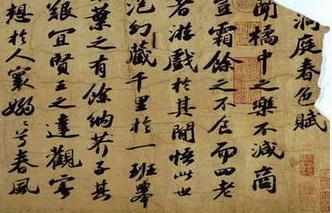 洞庭春色賦
聞橘中之樂不減商
豈霜餘之不食而四老
者游戲於其間悟此世
泡幻藏千里於一班舉
葉之有餘納芥子其
艱宜賢王之達觀寄
想於人寰嫋〻兮春風